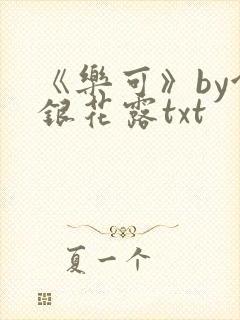 《樂可》by
銀花露txt
夏一个